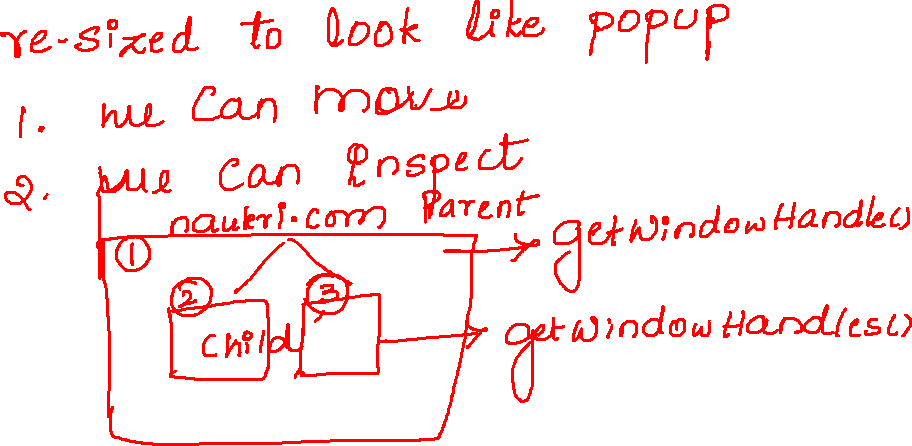 re-sized to look like popup
1. we can move
2. we can Inspect
naukri.com Parent
① → getWindowHandle()
② ③
child → getWindowHandles()